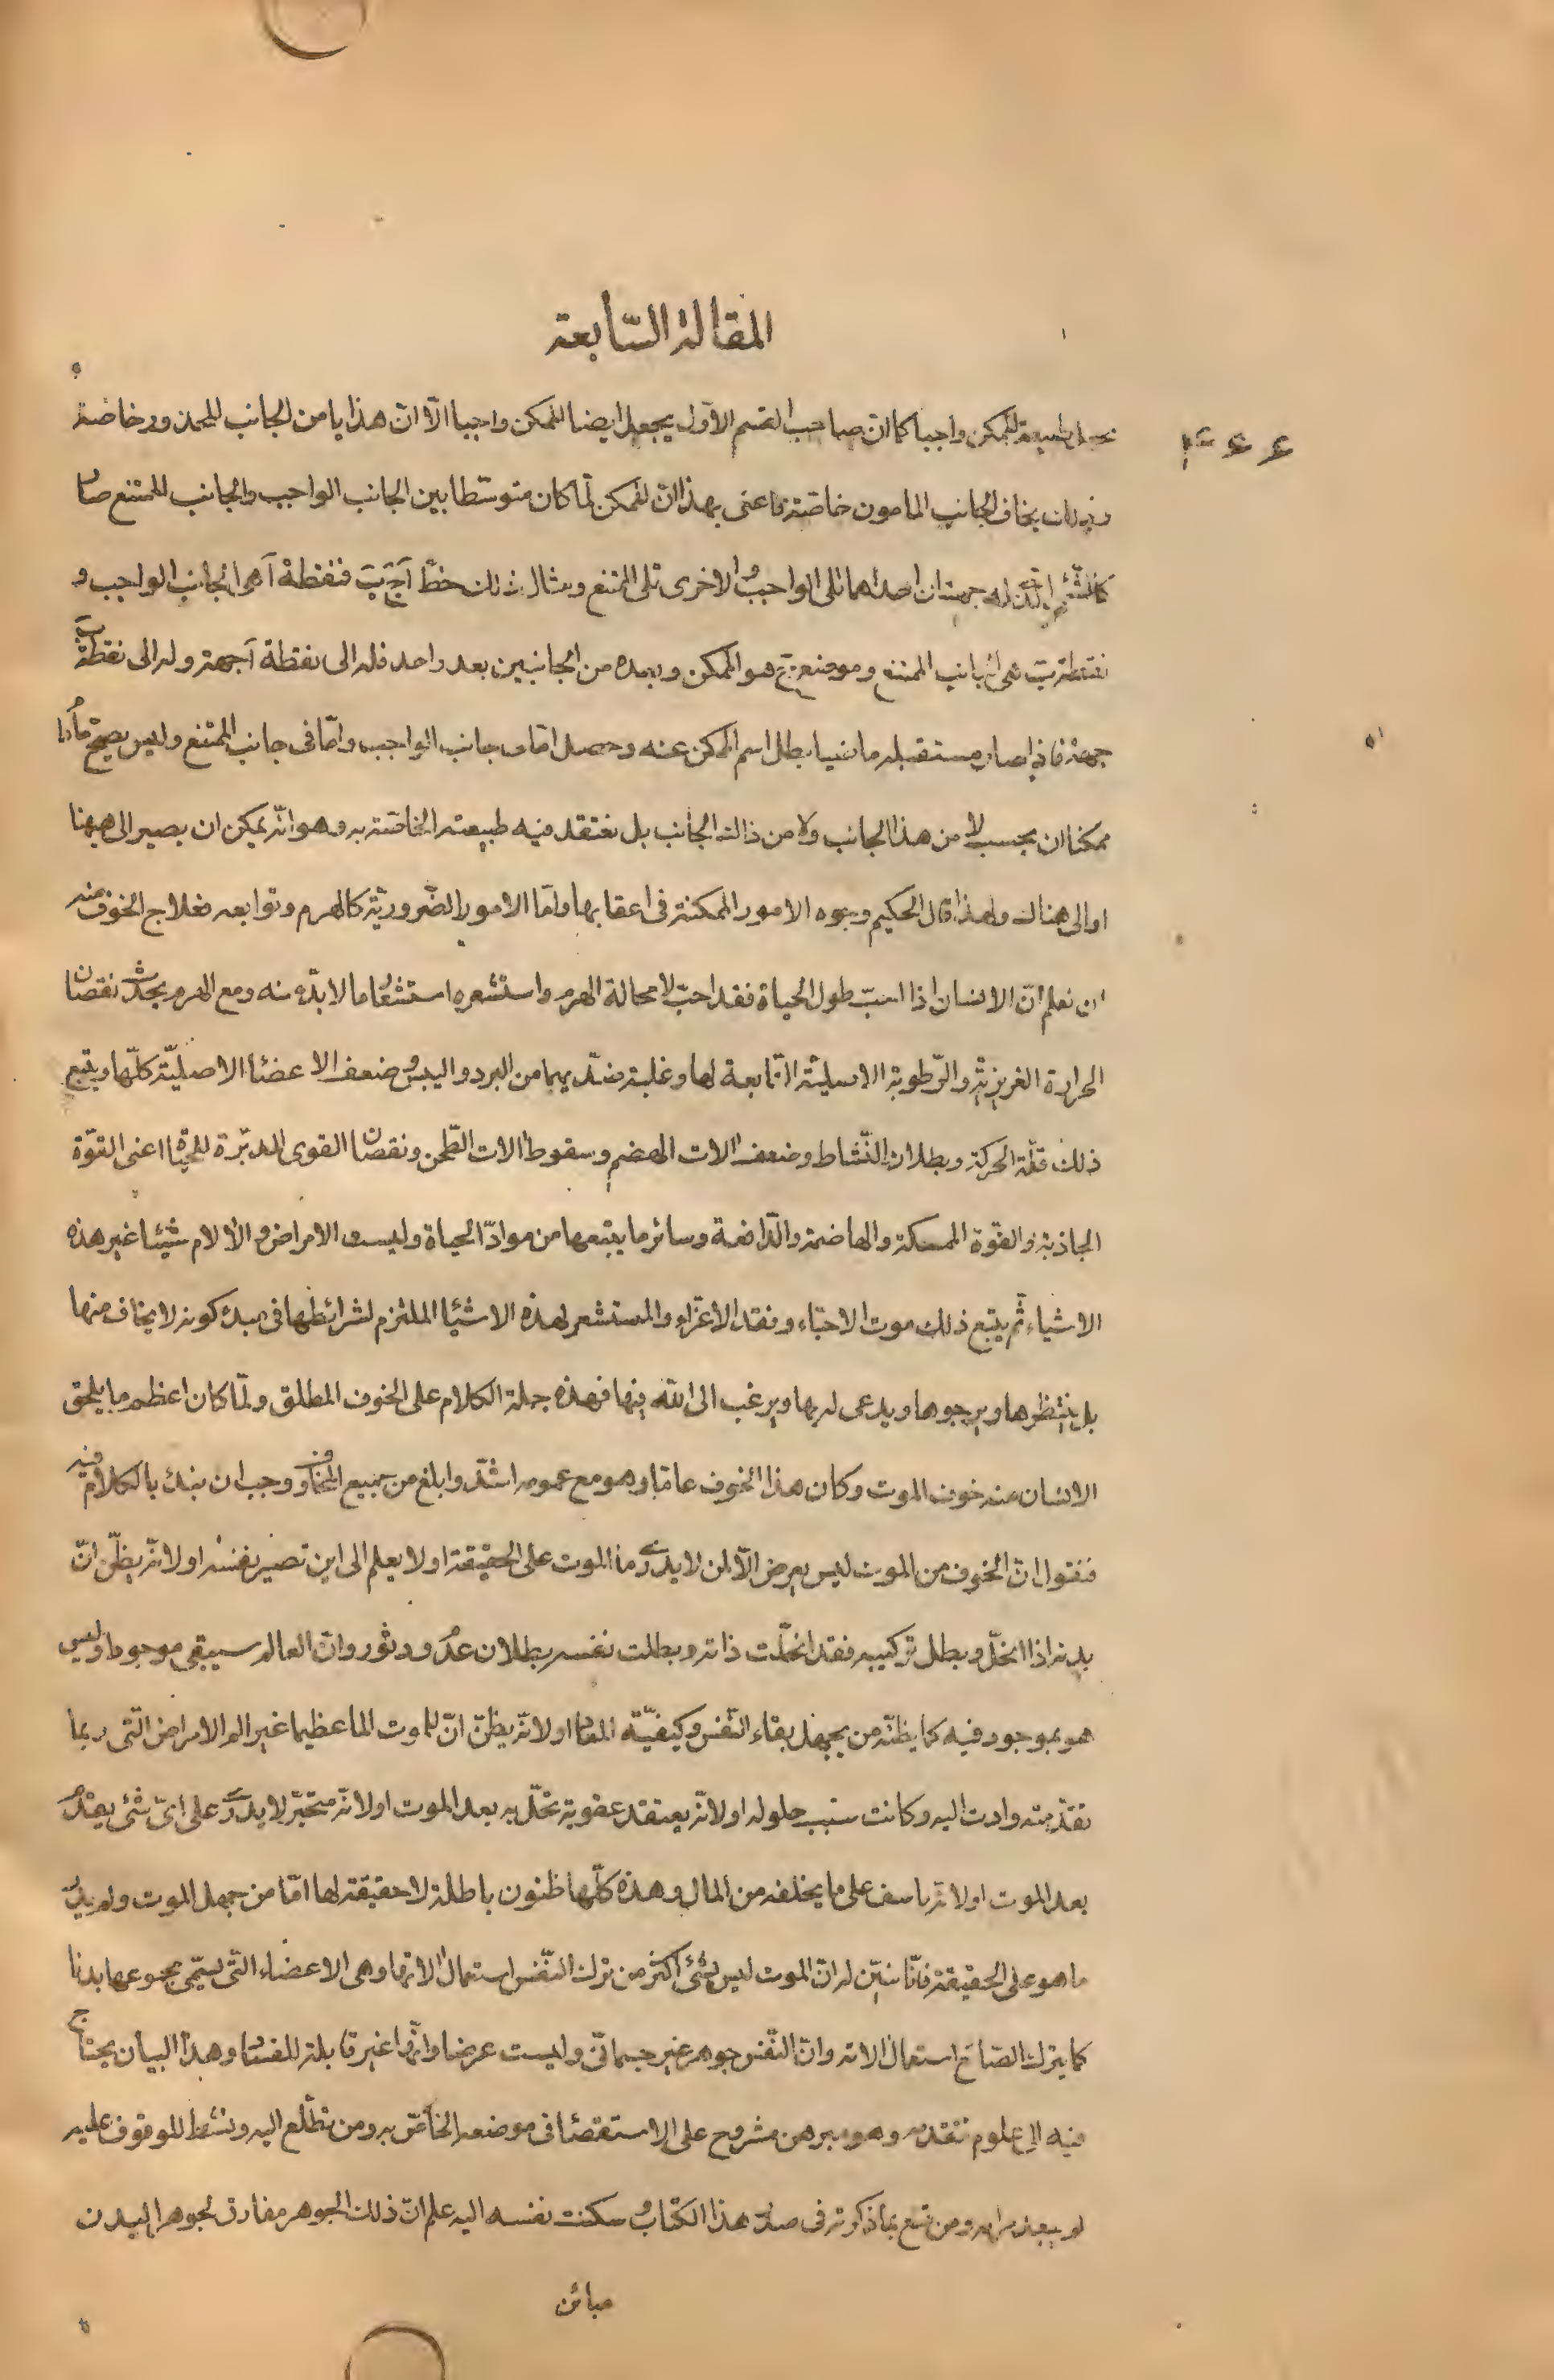 المقالة السّابعة
يجعل طبيعة الممكن واجبا كما انّ صاحب القسم الاوّل يجعل ايضا الممكن واجبا الّا انّ هذا يامن الجانب المحذور خاصّة
وذلك يخاف الجانب المامون خاصّة واعنى بهذا انّ الممكن لمّا كان متوسّطا بين الجانب الواجب والجانب الممتنع صار
كالشّئ الّذى له جهتان احداهما تلى الواجب والاخرى تلى الممتنع ومثال ذلك خطّ آ ج ب فنقطة آ هى الجانب الواجب و
نقطة ب هى الجانب الممتنع وموضع ج هو الممكن وبعده من الجانبين بعد واحد فله الى نقطة آ جهة وله الى نقطة ب
جهة فاذا صار مستقبله ماضيا بطل اسم الممكن عنه وحصل امّا فى جانب الواجب وامّا فى جانب الممتنع وليس يصحّ مادام
ممكنا ان يحسب لا من هذا الجانب ولا من ذالك الجانب بل نعتقد فيه طبيعته الخاصّة به وهو انّه يمكن ان يصير الى هيهنا
او الى هناك ولهذا قال الحكيم وجوه الامور الممكنة فى اعقابها وامّا الامور الضّروريّة كالهرم وتوابعه فعلاج الخوف منه
ان نعلم انّ الانسان اذا احبّ طول الحياة فقد احبّ لا محالة الهرم واستشعره استشعار ما لا بدّ منه ومع الهرم يحدث نقصان
الحرارة الغريزيّة والرّطوبة الاصليّة التّابعة لها وغلبة ضدّيهما من البرد واليبس وضعف الاعضاء الاصليّة كلّها ويتبع
ذلك قلّة الحركة وبطلان النّشاط وضعف الات الهضم وسقوط الات الطّحن ونقصان القوى المدبّرة للحياة اعنى القوّة
الجاذبة والقوّة الممسكة والهاضمة والدّافعة وسائر ما يتبعها من موادّ الحياة وليست الامراض والالام شيئا غير هذه
الاشياء ثمّ يتبع ذلك موت الاحبّاء وفقد الاعزّاء والمستشعر لهذه الاشياء الملتزم لشرائطها فى مبدء كونه لا يخاف منها
بل ينتظرها ويرجوها ويدعى له بها ويرغب الى اللّه فيها فهذه جملة الكلام على الخوف المطلق ولمّا كان اعظم ما يلحق
الانسان منه خوف الموت وكان هذا الخوف عامّا وهو مع عمومه اشدّ وابلغ من جميع المخاوف وجب ان نبدء بالكلام فيه
فنقول انّ الخوف من الموت ليس يعرض الّا لمن لا يدرى ما الموت على الحقيقة او لا يعلم الى اين تصير نفسه او لانّه يظنّ انّ
بدنه اذا انحلّ وبطل تركيبه فقد انحلّت ذاته وبطلت نفسه بطلان عدم ودثور وانّ العالم سيبقى موجودا وليس
هو بموجود فيه كما يظنّه من يجهل بقاء النّفس وكيفيّة المعاد او لانّه يظنّ انّ للموت الما عظيما غير الم الامراض الّتى ربما
تقدّمته وادت اليه وكانت سبب حلوله او لانّه يعتقد عقوبة تحلّ به بعد الموت او لانّه متحيّر لا يدرى على اىّ شئ يقدم
بعد الموت او لانّه ياسف على ما يخلفه من المال وهذه كلّها ظنون باطلة لا حقيقة لها امّا من جهل الموت ولم يدر
ما هو على الحقيقة فانّا نبيّن له انّ الموت ليس بشئ اكثر من ترك النّفس استعمال الاتها وهى الاعضاء الّتى يسمّى مجموعها بدنا
كما يترك الصّانع استعمال الاته وانّ النّفس جوهر غير جسمانّى وليست عرضا وانّها غير قابلة للفساد وهذا البيان يحتاج
فيه الى علوم تتقدمه وهو مبرهن مشروح على الاستقصاء فى موضعه الخاصّ به ومن تطلّع اليه ونشط للوقوف عليه
لم يبعد مرامه ومن قنع بما ذكرته فى صدر هذا الكتاب وسكنت نفسه اليه علم انّ ذلك الجوهر مفارق لجوهر البدن
مبائن